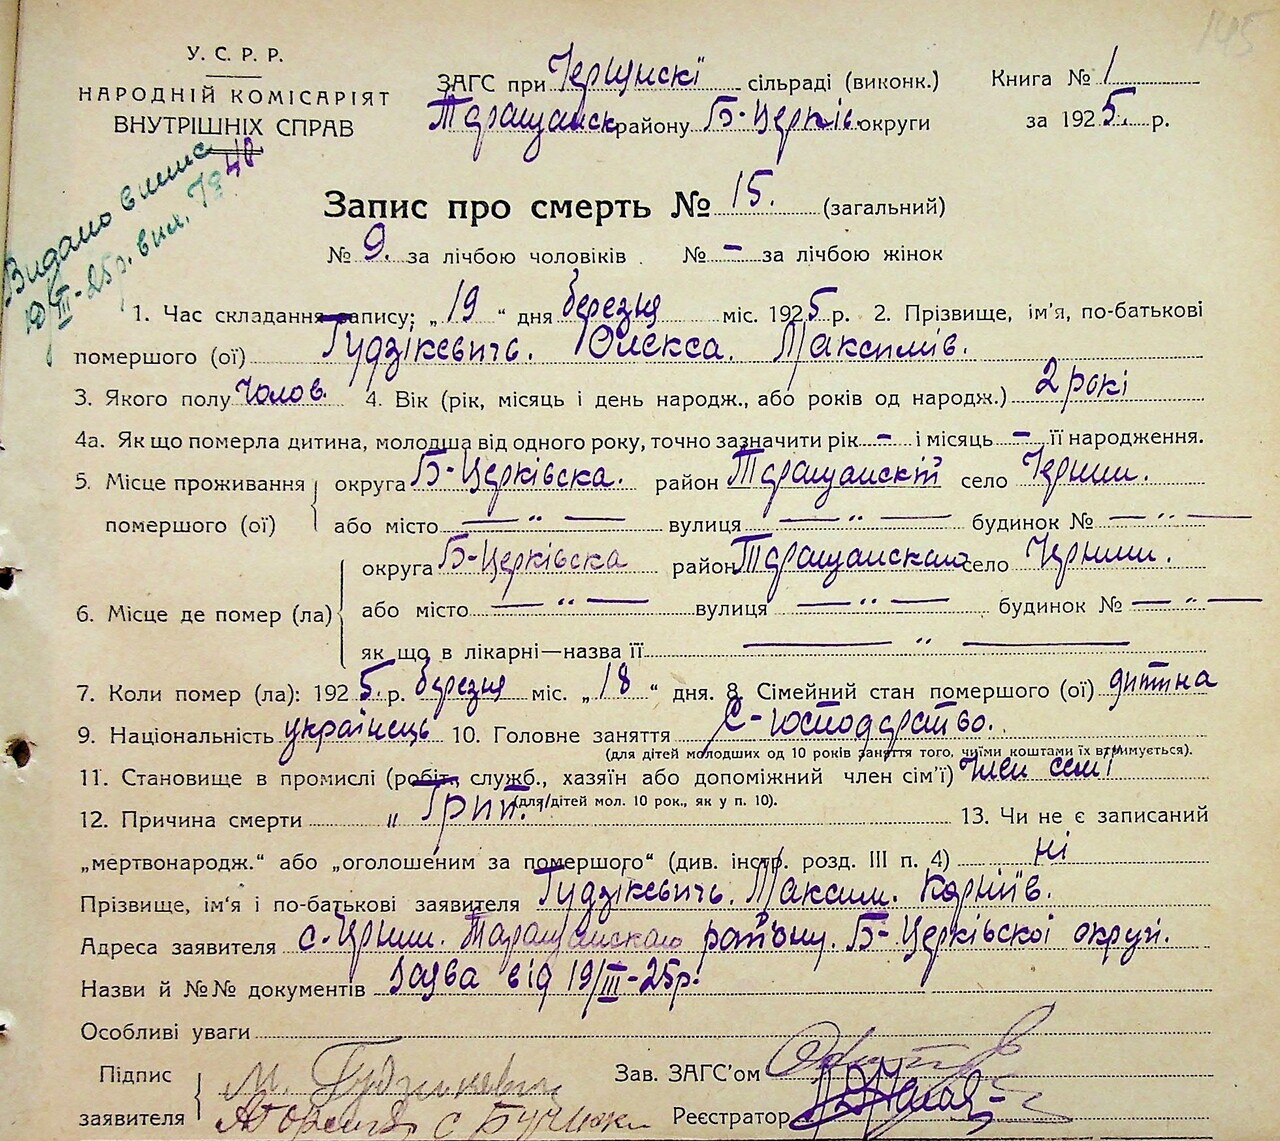 145
У. С. Р. Р.
НАРОДНІЙ КОМІСАРІЯТ
ВНУТРІШНІХ СПРАВ
ЗАГС при Чернинскі сільраді (виконк.)
Таращанск району Б-Церків. округи
Книга № 1
за 1925. р.
Видано випис
19/III-25р. вих. № 40
Запис про смерть № 15. (загальний)
№ 9. за лічбою чоловіків № - за лічбою жінок
1. Час складання запису; „19“ дня березня міс. 1925 р. 2. Прізвище, ім'я, по-батькові
помершого (ої) Гудзікевичь. Олекса. Максимів.
3. Якого полу чолов. 4. Вік (рік, місяць і день народж., або років од народж.) 2 рокі
4а. Як що померла дитина, молодша від одного року, точно зазначити рік - і місяць - її народження.
5. Місце проживання округа Б-Церківска. район Таращанскій село Чернин.
помершого (ої) або місто — „ — вулиця — „ — будинок № — „ —
округа Б-Церківска район Таращанскаю село Чернин.
6. Місце де помер (ла) або місто — „ — вулиця — „ — будинок № — „ —
як що в лікарні—назва її — „ —
7. Коли помер (ла): 1925. р. березня міс. „18“ дня. 8. Сімейний стан помершого (ої) дитина
9. Національність українець 10. Головне заняття С-господарство.
(для дітей молодших од 10 років заняття того, чиїми коштами їх втримується).
11. Становище в промислі (робіт., служб., хазяїн або допоміжний член сім'ї) член семї
(для дітей мол. 10 рок., як у п. 10).
12. Причина смерти „ Грип. 13. Чи не є записаний
„мертвонародж.“ або „оголошеним за помершого“ (див. інстр. розд. III п. 4) ні
Прізвище, ім'я і по-батькові заявителя Гудзікевичь. Максим. Корніїв.
Адреса заявителя с. Чернин. Таращанскаю району. Б-Церківскоі округи.
Назви й №№ документів Заява від 19/III-25р.
Особливі уваги
Підпис М. Гудзикевич Зав. ЗАГС'ом
заявителя Реєстратор